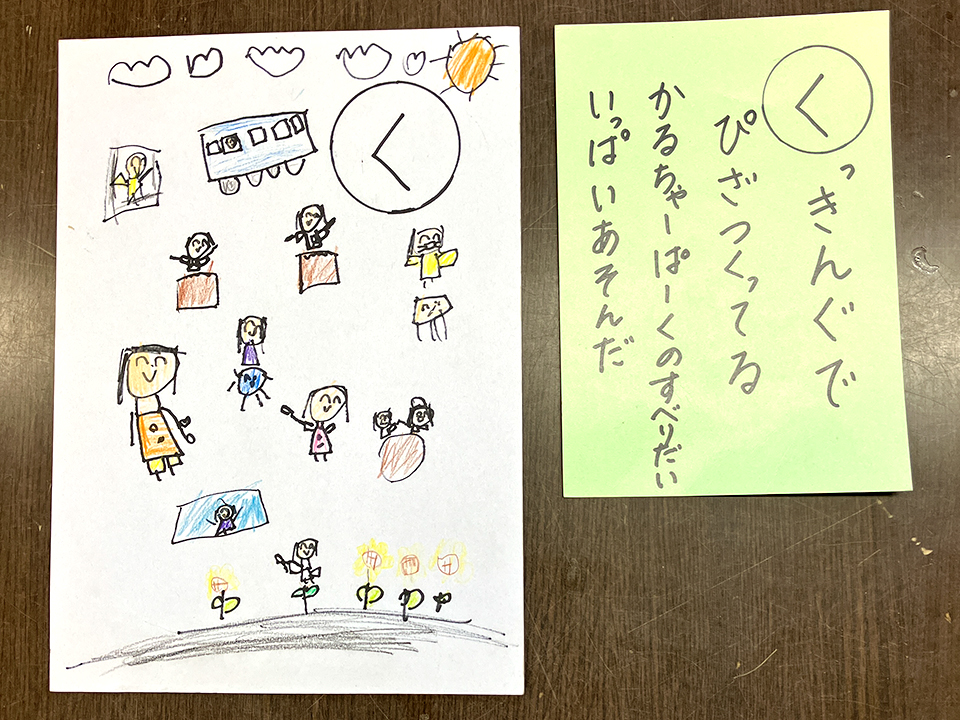 く
くっきんぐで
ぴざつくってる
かるちゃーぱーくのすべりだい
いっぱいあそんだ